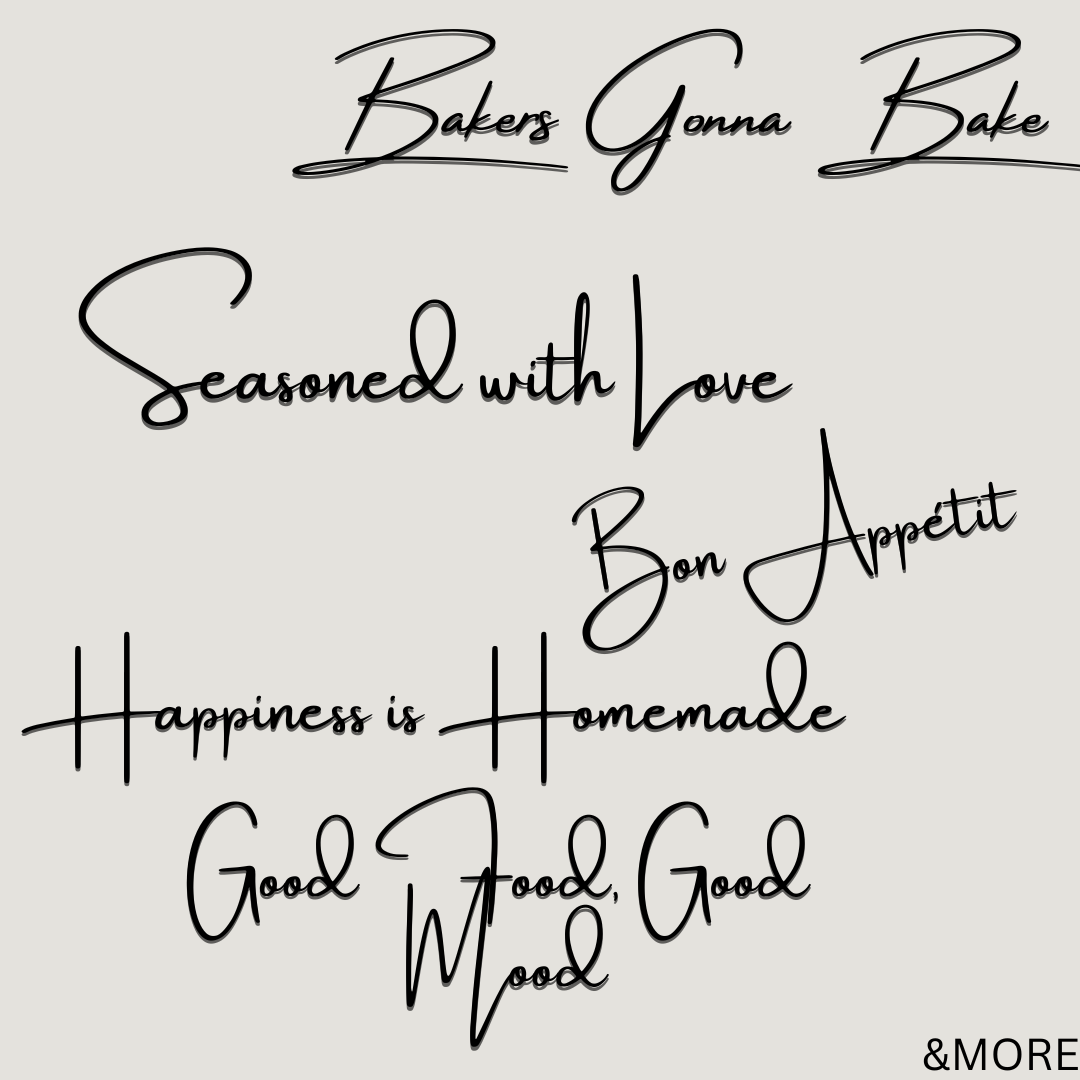 Bakers Gonna Bake
Seasoned with Love
Bon Appétit
Happiness is Homemade
Good Food, Good
Mood
&MORE